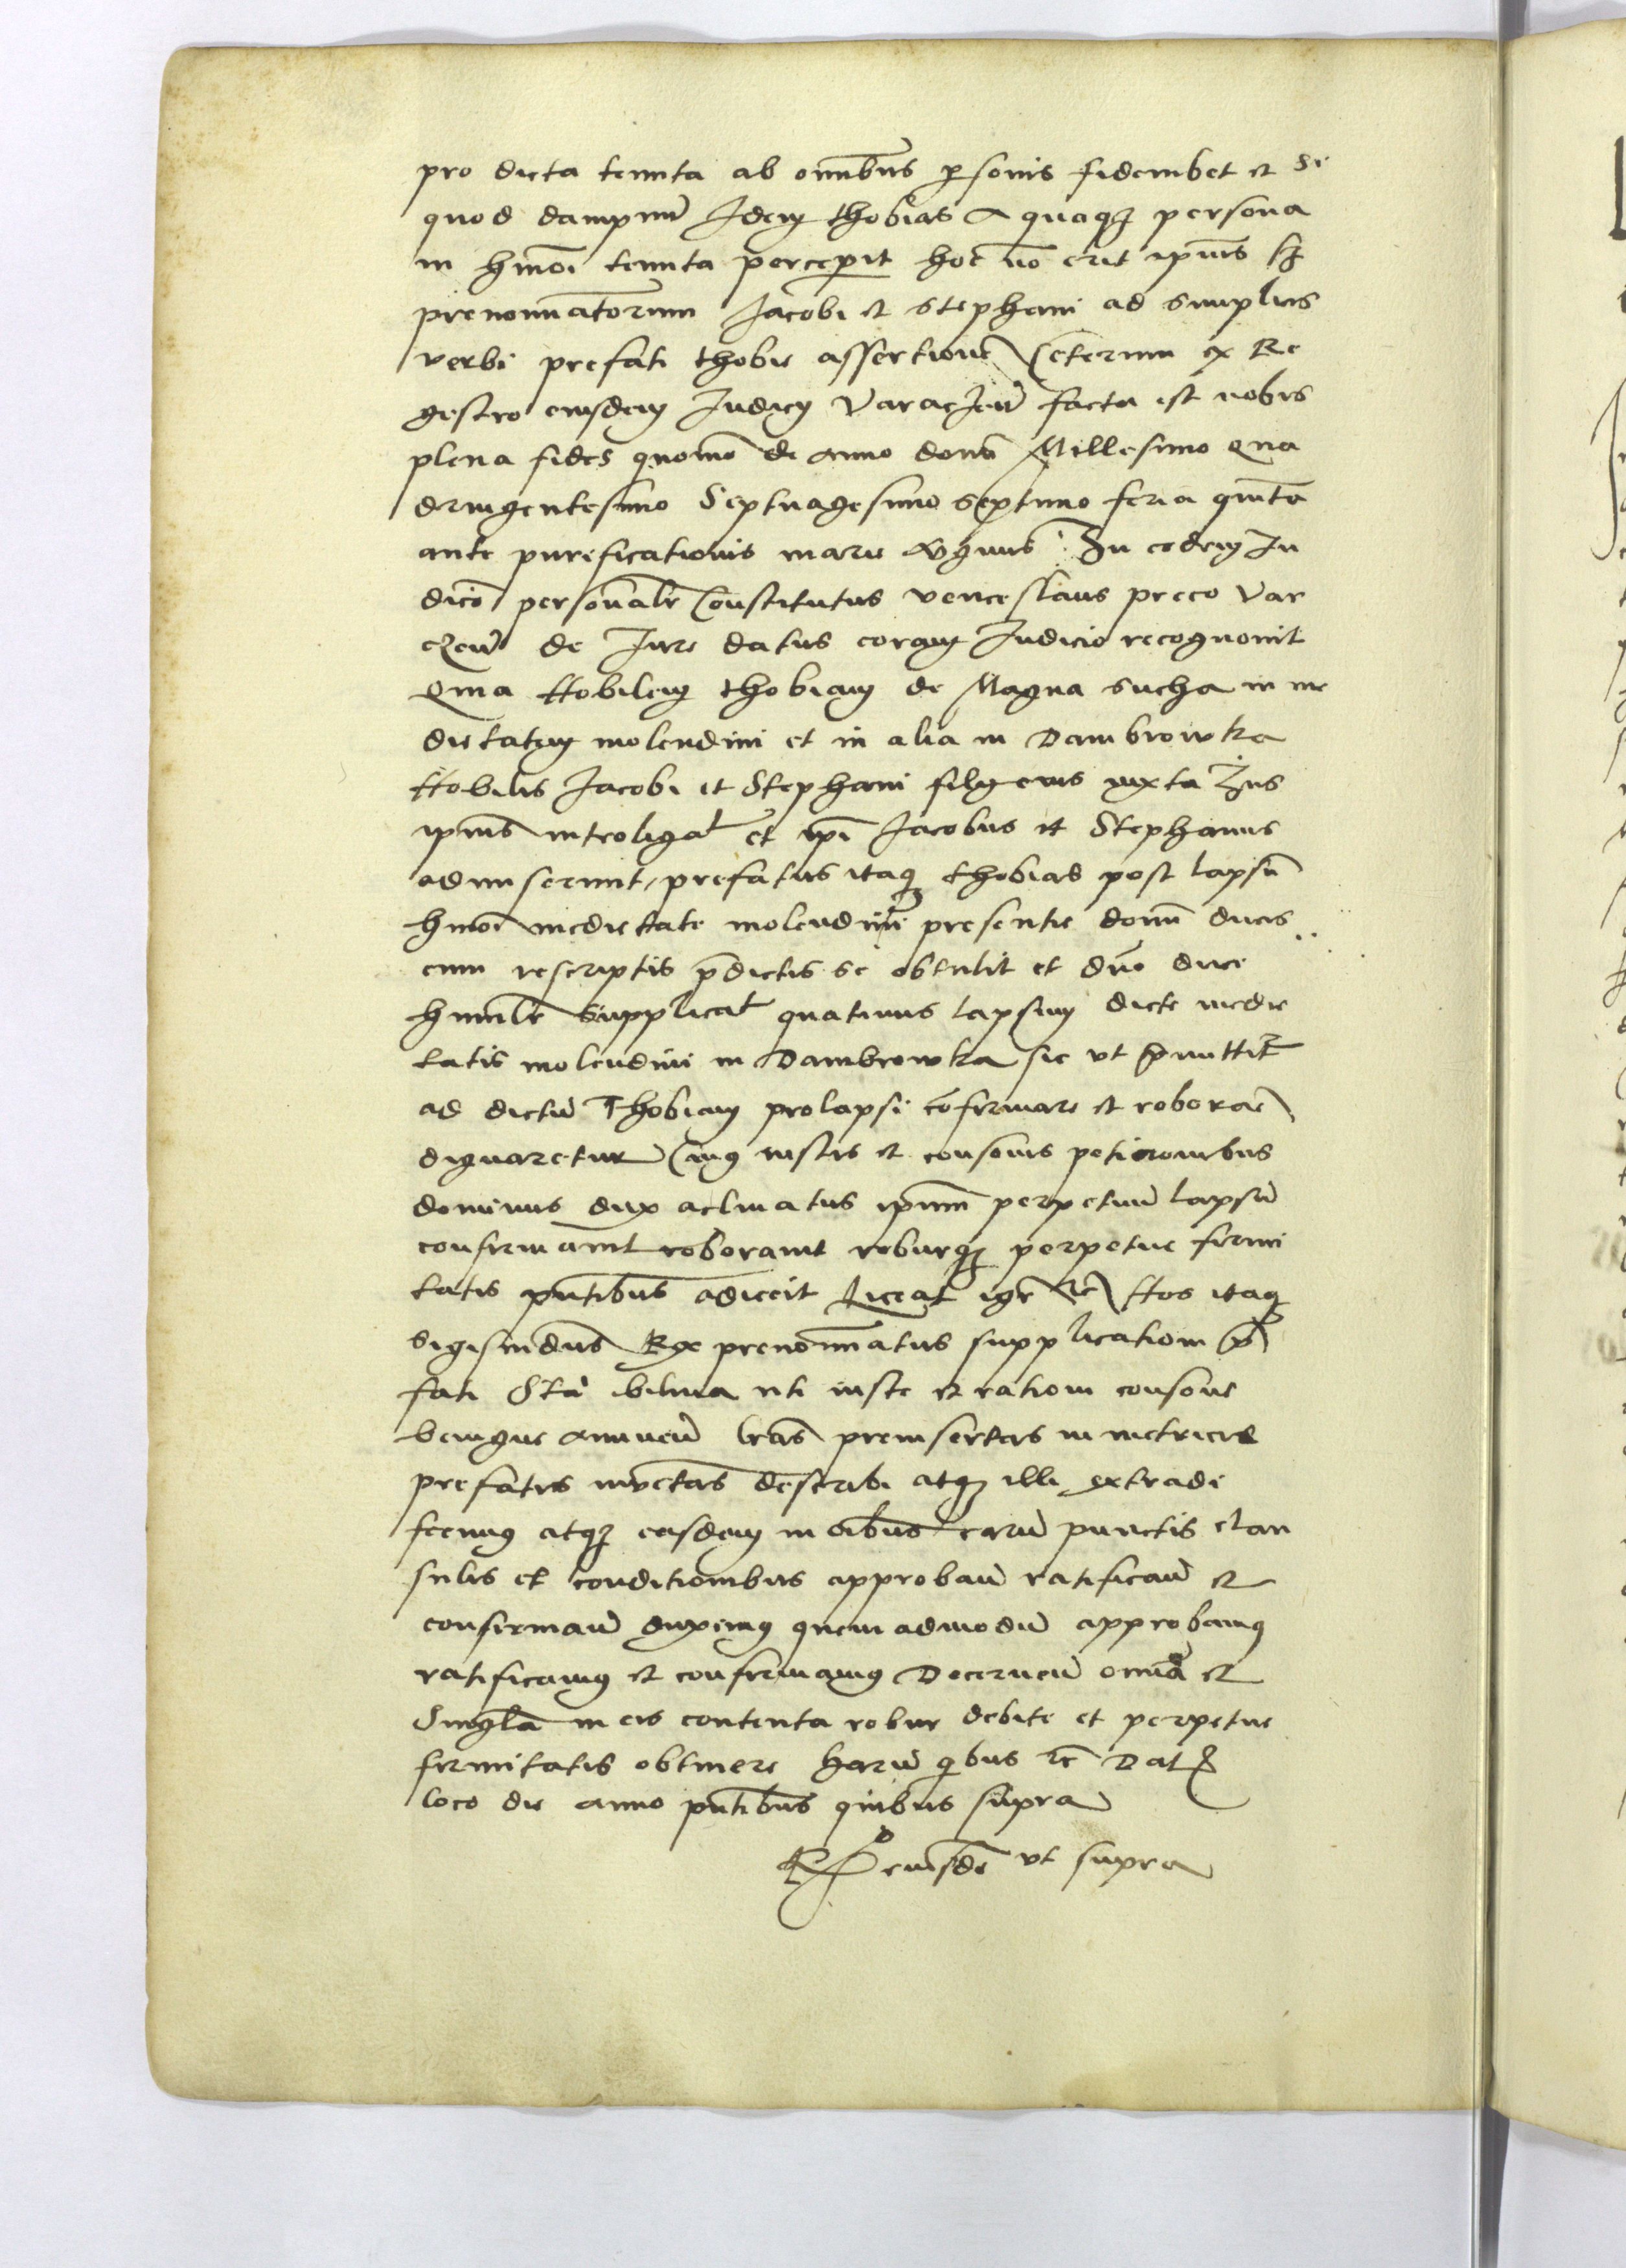 pro dicta tenuta ab omnibus personis fideiubet et si
quod dampnum Idem thobias A quaqz persona
in hmoi tenuta perceperit hoc no erit ipius sz
prenominatorum Iacobi et Stephani ad simplicis
verbi prefati thobie assertione Ceterum ex Re
gestro eiusdem Iudicy Varaczien facta est nobis
plena fides quomo de anno domi Millesimo Qua
dringentesimo Septuagesimo septimo feria quinta
ante purificationis marie virginis In eodem Iu
dicio personalr Constitutus venceslaus preco Var
czen de Iure datus coram Iudicio recognouit
Quia Nobilem thobiam de Magna sucha in me
dietatem molendini et in alia in Dambrowka
Nobilis Iacobi et Stephani filij eius iuxta Ius
ipius introligat et ipi Iacobus et Stephanus
admiserunt, prefatus itaqz thobias post lapsu
hmoi medietate molendini presentie domi ducis
cum rescriptis pdictis se obtulit et dno duce
humilr supplicat quatinus lapsum dicte medie
tatis molendini in Dambrowka sic ut pmittit
ad dictu Thobiam prolapsi cofirmare et roborare
dignaretur Cuius iustis et consonis peticionibus
dominus dux aclinatus ipium perpetuu lapsu
confirmauit roborauit roburqz perpetue firmi
tatis pntibus adiecit Liceat igr etc Nos itaqz
Sigismdus Rex prenominatus supplicatioi p
fati Sta bilina uti iuste et rationi consone
benigne annuen lras preinsertas in metricis
prefatis inuetas describi atqz illi extradi
fecimus atqz easdem in oibus earu punctis clau
sulis et conditionibus approban ratifican et
confirman duximus quemadmodu approbamus
ratificamus et confirmamus Decernen omia et
Singla in eis contenta robur debite et perpetue
firmitatis obtinere haru qibus etc Dat
loco die anno pntibus quibus supra
Ro eiusde ut supra